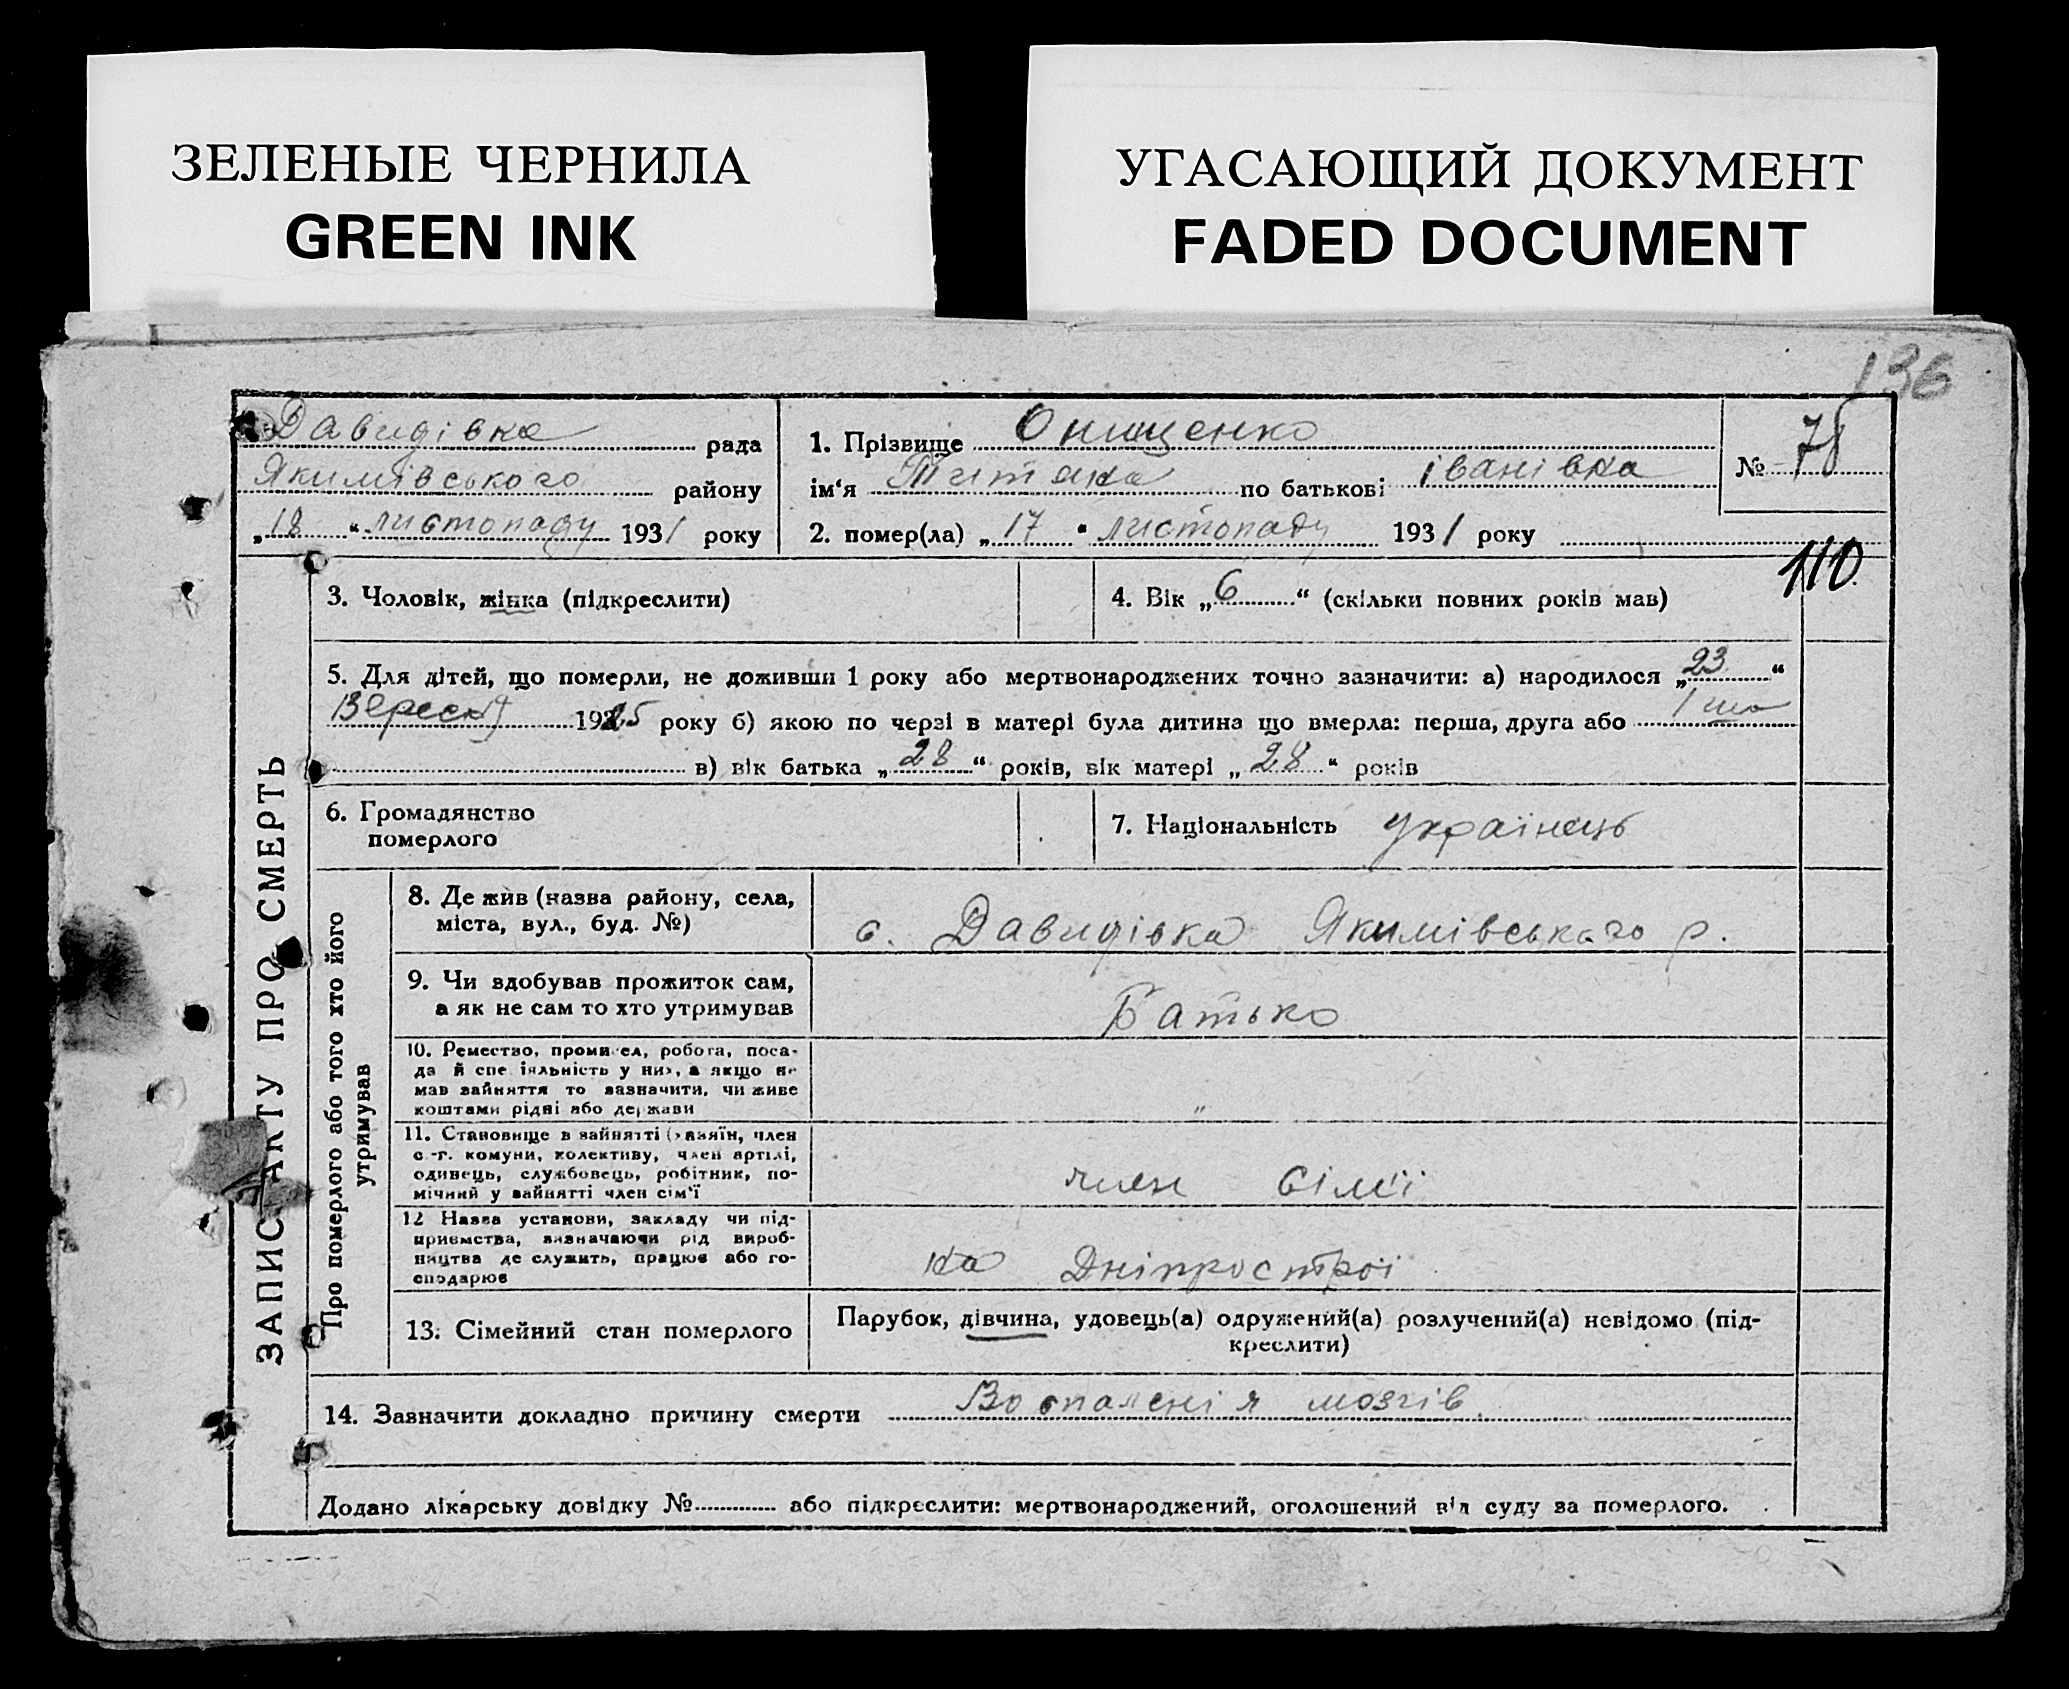 ЗЕЛЕНЫЕ ЧЕРНИЛА
GREEN INK
УГАСАЮЩИЙ ДОКУМЕНТ
FADED DOCUMENT
136
Давидівка рада
Якимівського району
„18“ листопаду 1931 року
1. Прізвище Онищенко
ім‘я по батькові Іванівна
2. помер(ла) „17“ листопаду 1931 року
№ 78
110
ЗАПИС АКТУ ПРО СМЕРТЬ
3. Чоловік, жінка (підкреслити)
4. Вік „6“ (скільки повних років мав)
5. Для дітей, що померли, не доживши 1 року або мертвонароджених точно зазначити: а) народилося „23“
Вересня 1925 року б) якою по черзі в матері була дитина що вмерла: перша, друга або 1 ша
в) вік батька „28“ років, вік матері „28“ років
6. Громадянство
померлого
7. Національність українець
Про померлого або того хто його
утримував
8. Де жив (назва району, села,
міста, вул., буд. №)
с. Давидівка Якимівського р.
9. Чи здобував прожиток сам,
а як не сам то хто утримував
Батько
10. Ремество, промисел, робота, поса-
да й спеціяльність у них, а якщо не
мав зайняття то зазначити, чи живе
коштами рідні або держави
„
11. Становище в зайнятті (хазяїн, член
с.-г. комуни, колективу, член артілі,
одивець, службовець, робітник, по-
мічний у зайнятті член сім‘ї
член сімї
12 Назва установи, закладу чи під-
приємства, визначаючи рід вироб-
ництва де служить, працює або го-
сподарює
на Дніпрострої
13. Сімейний стан померлого
Парубок, дівчина, удовець(а) одружений(а) розлучений(а) невідомо (під-
креслити)
14. Зазначити докладно причину смерти Воспаленія мозгів
Додано лікарську довідку № або підкреслити: мертвонароджений, оголошений від суду за померлого.